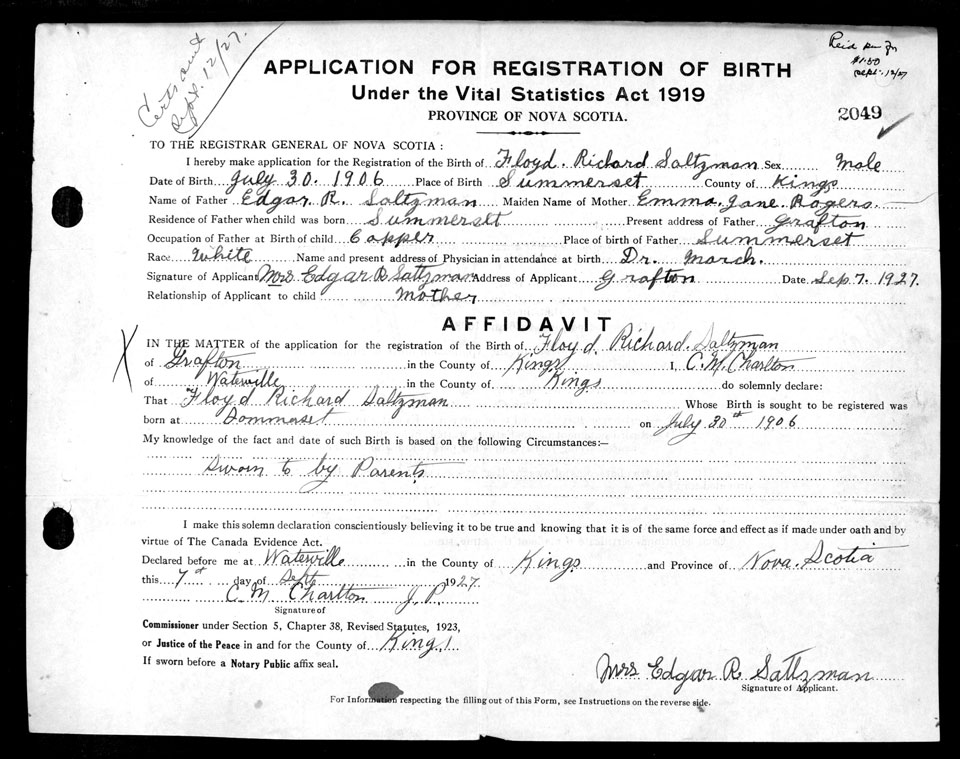 Certs sent
Sept. 12/27.
$1.50
Sept. 12/27
APPLICATION FOR REGISTRATION OF BIRTH
Under the Vital Statistics Act 1919
PROVINCE OF NOVA SCOTIA.
2049
TO THE REGISTRAR GENERAL OF NOVA SCOTIA :
I hereby make application for the Registration of the Birth of Floyd Richard Saltzman Sex Male
Date of Birth July 30. 1906 Place of Birth Summerset County of Kings
Name of Father Edgar R. Saltzman Maiden Name of Mother Emma Jane Rogers
Residence of Father when child was born Summerset Present address of Father Grafton
Occupation of Father at Birth of child Copper Place of birth of Father Summerset
Race White Name and present address of Physician in attendance at birth Dr. March.
Signature of Applicant Mrs Edgar R Saltzman Address of Applicant Grafton Date Sep 7. 1927.
Relationship of Applicant to child Mother
AFFIDAVIT
X
IN THE MATTER of the application for the registration of the Birth of Floyd Richard Saltzman
of Grafton in the County of Kings I, C. M. Charlton
of Waterville in the County of Kings do solemnly declare:
That Floyd Richard Saltzman Whose Birth is sought to be registered was
born at Sommerset on July 30th 1906
My knowledge of the fact and date of such Birth is based on the following Circumstances:—
Sworn to by Parents
I make this solemn declaration conscientiously believing it to be true and knowing that it is of the same force and effect as if made under oath and by
virtue of The Canada Evidence Act.
Declared before me at Waterville in the County of Kings and Province of Nova Scotia
this 7th day of Sept 1927.
C. M. Charlton J. P.
Signature of
Commissioner under Section 5, Chapter 38, Revised Statutes, 1923,
or Justice of the Peace in and for the County of Kings
If sworn before a Notary Public affix seal.
Mrs Edgar R. Saltzman
Signature of Applicant.
For Information respecting the filling out of this Form, see Instructions on the reverse side.